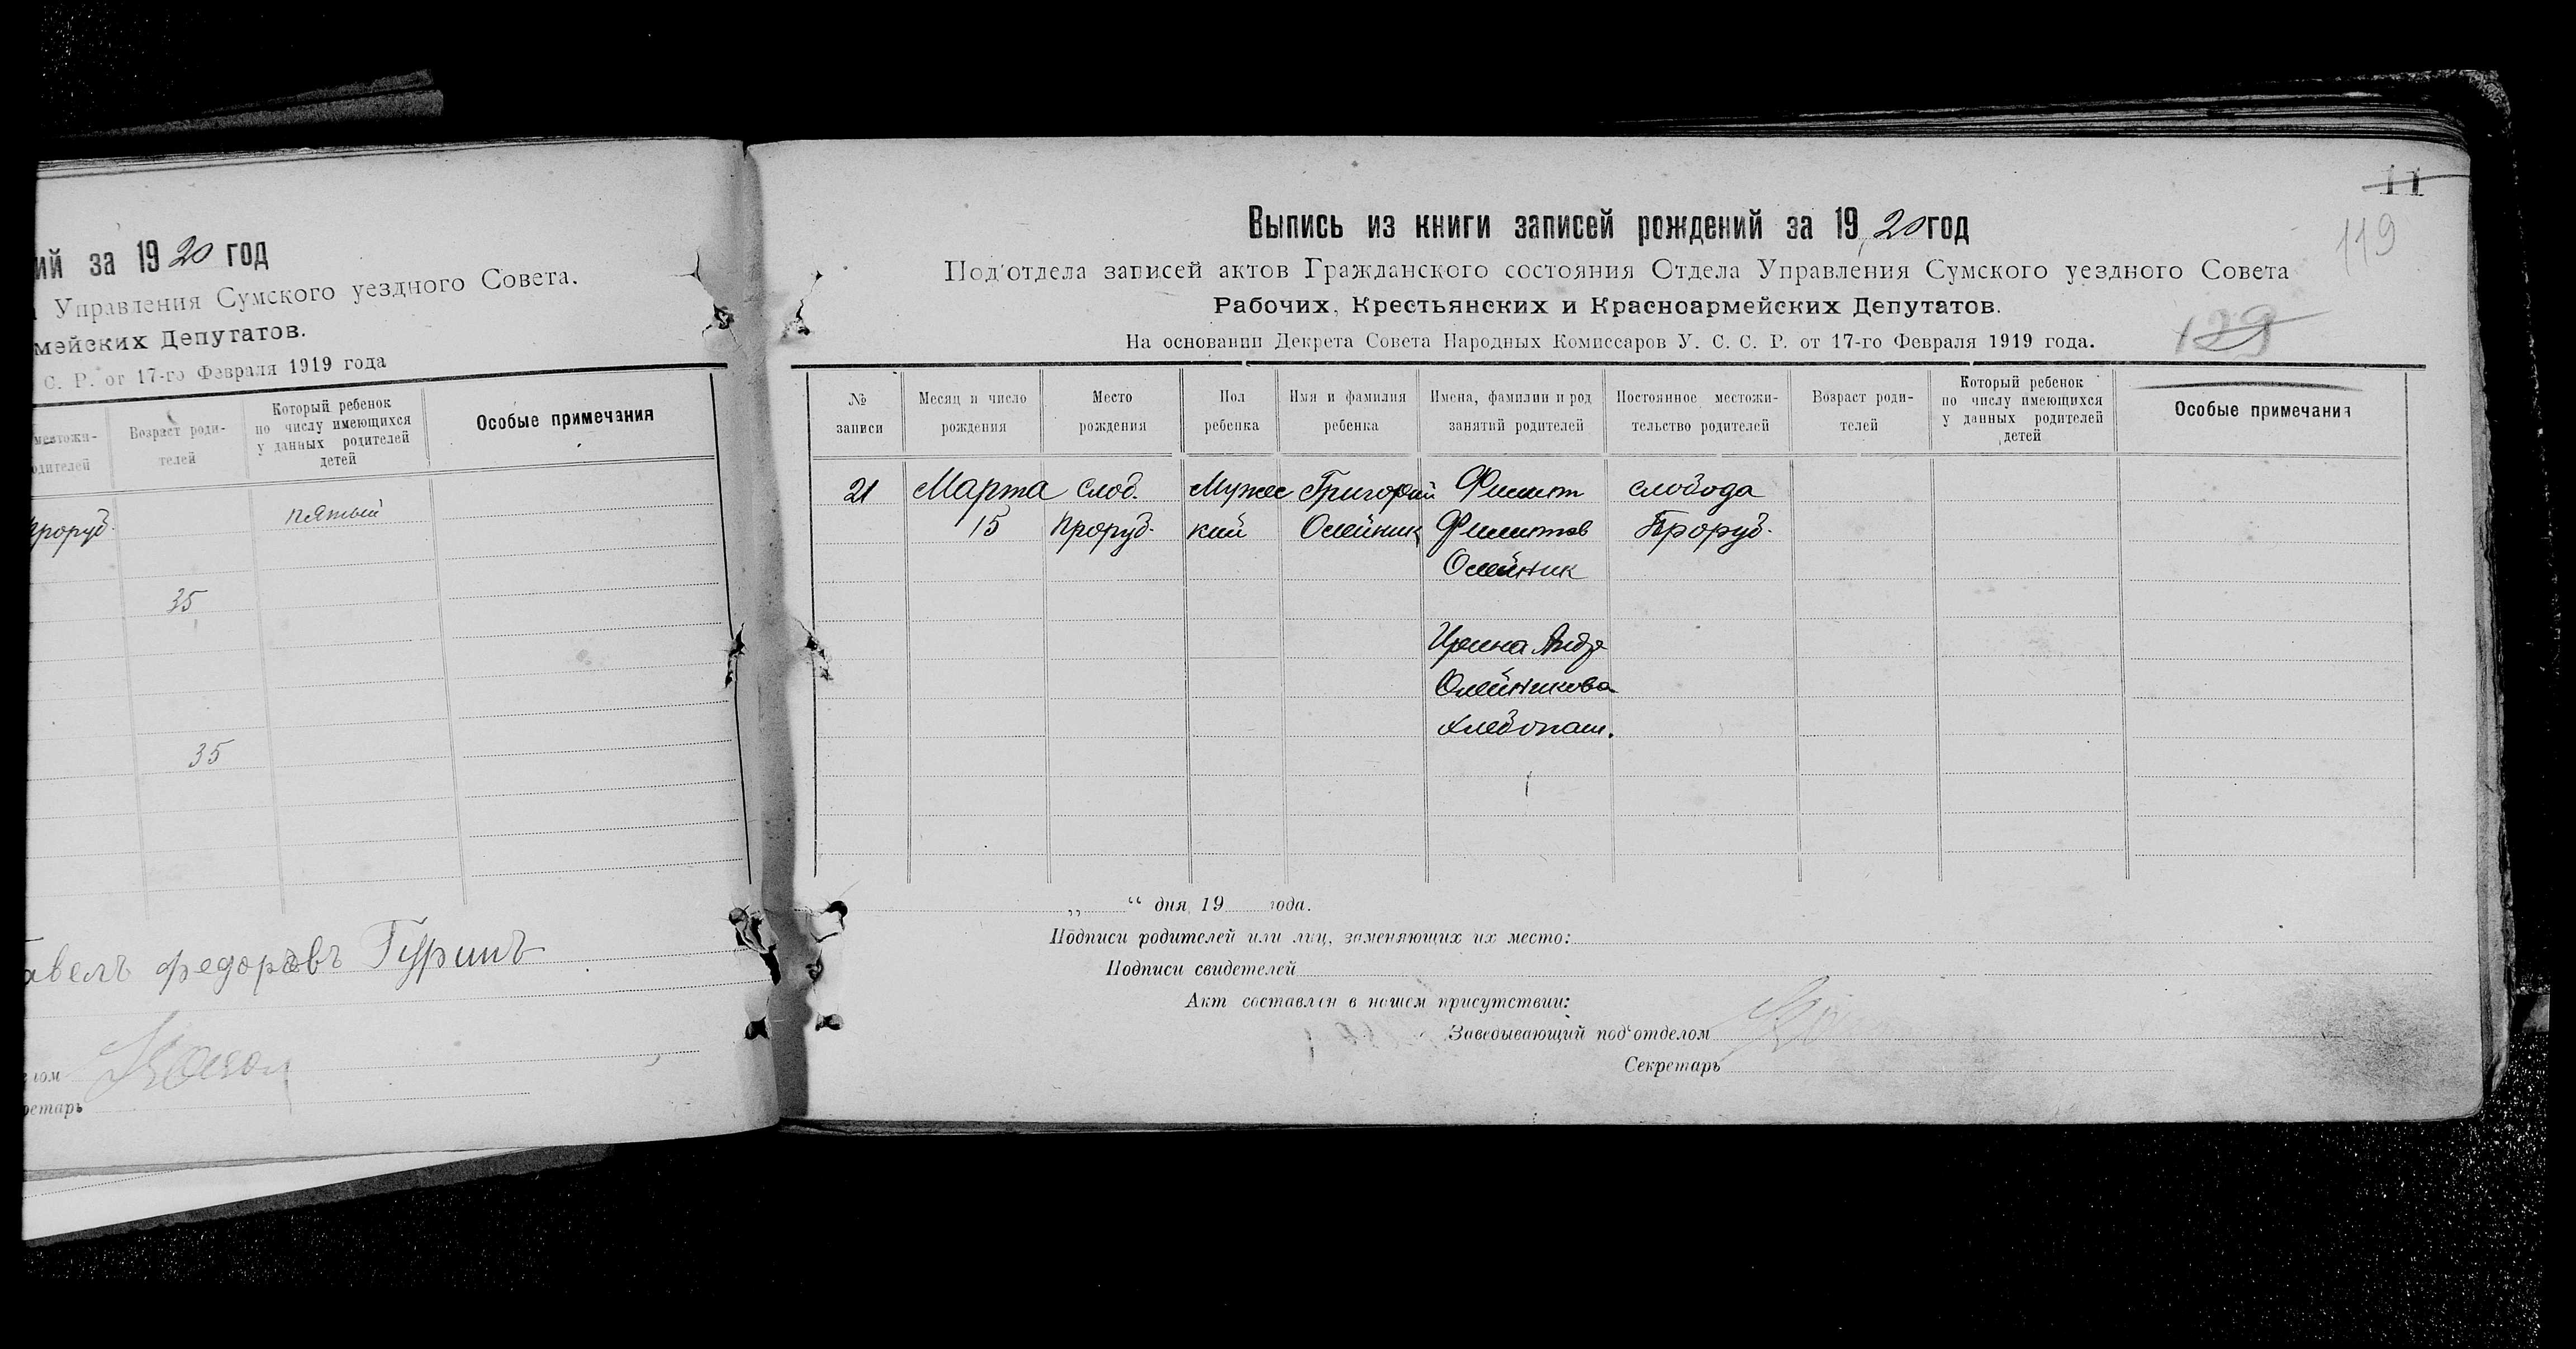 ий за 1920 год
Управления Сумского уездного Совета.
мейских Депутатов.
С. Р. от 17-го Февраля 1919 года
местожи-
одителей
Возраст роди-
телей
Который ребенок
по числу имеющихся
у данных родителей
детей
Особые примечания
Проруб.
пятый
35
35
авелъ федоровъ Гуринъ
лом
ретарь
11
119
129
Выпись из книги записей рождений за 1920 год
Под'отдела записей актов Гражданского состояния Отдела Управления Сумского уездного Совета
Рабочих, Крестьянских и Красноармейских Депутатов.
На основании Декрета Совета Народных Комиссаров У. С. С. Р. от 17-го Февраля 1919 года.
№
записи
Месяц и число
рождения
Место
рождения
Пол
ребенка
Имя и фамилия
ребенка
Имена, фамилии и род
занятий родителей
Постоянное местожи-
тельство родителей
Возраст роди-
телей
Который ребенок
по числу имеющихся
у данных родителей
детей
Особые примечания
21
Марта
15
слод.
Проруб.
Мужес
кий
Григорий
Олейник
Олейник
Ирина Андр
Олейникова
хлебопаш.
слобода
Проруб.
„ “ дня 19 года.
Подписи родителей или лиц, заменяющих их место:
Подписи свидетелей
Акт составлен в нашем присутствии:
Заведывающий под'отделом
Секретарь